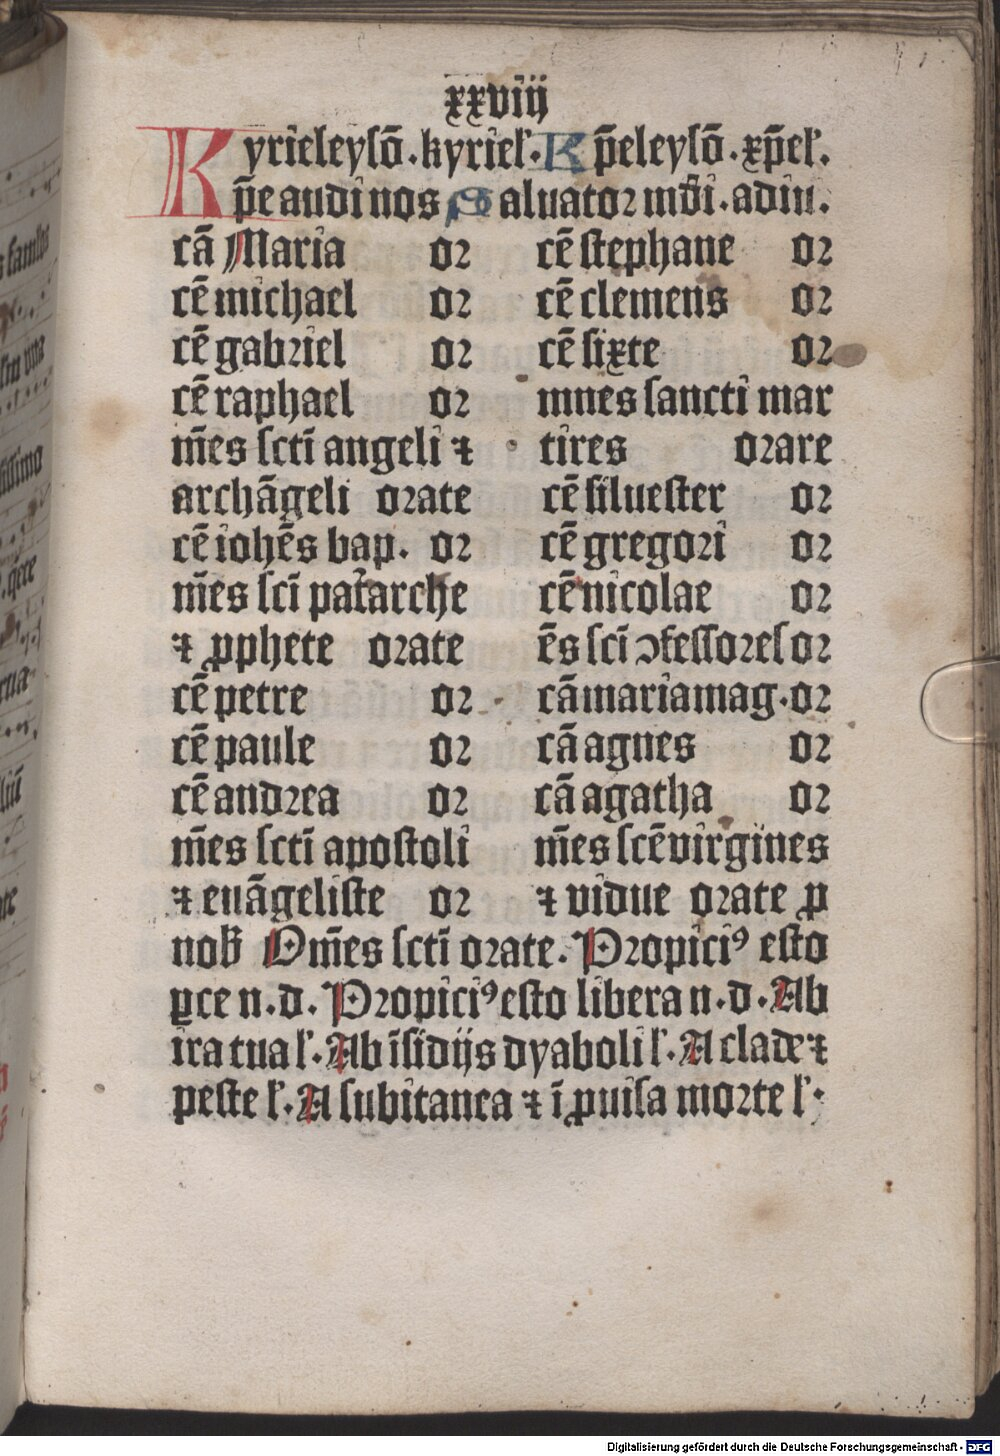 xxviij
Kyrieleysō. kyriel̄. Xp̄eleysō. xp̄el̄.
Xp̄e audi nos Saluatoꝛ mūdi. adiu.
cā Maria oꝛ
cē michael oꝛ
cē gabꝛiel oꝛ
cē raphael oꝛ
m̄es sctī angeli ⁊
archāgeli oꝛate
cē iohēs bap. oꝛ
m̄es scī patarche
⁊ ꝓphete oꝛate
cē petre oꝛ
cē paule oꝛ
cē andꝛea oꝛ
m̄es sctī apostoli
⁊ euāgeliste oꝛ
cē stephane oꝛ
cē clemens oꝛ
cē sixte oꝛ
mnes sancti mar
tires oꝛare
cē siluester oꝛ
cē gregoꝛi oꝛ
cē nicolae oꝛ
ēs scī ↄfessoꝛes oꝛ
cā maria mag. oꝛ
cā agnes oꝛ
cā agatha oꝛ
m̄es scē virgines
⁊ vidue oꝛate ꝓ
nob̄ Om̄es sctī oꝛate. Pꝛopiciꝰ esto
ꝑce n. d. Pꝛopiciꝰ esto libera n. d. Ab
ira tua l̄. Ab īsidijs dyaboli l̄. A clade ⁊
peste l̄. A subitanea ⁊ īꝓuisa moꝛte l̄.
Digitalisierung gefördert durch die Deutsche Forschungsgemeinschaft - DFG